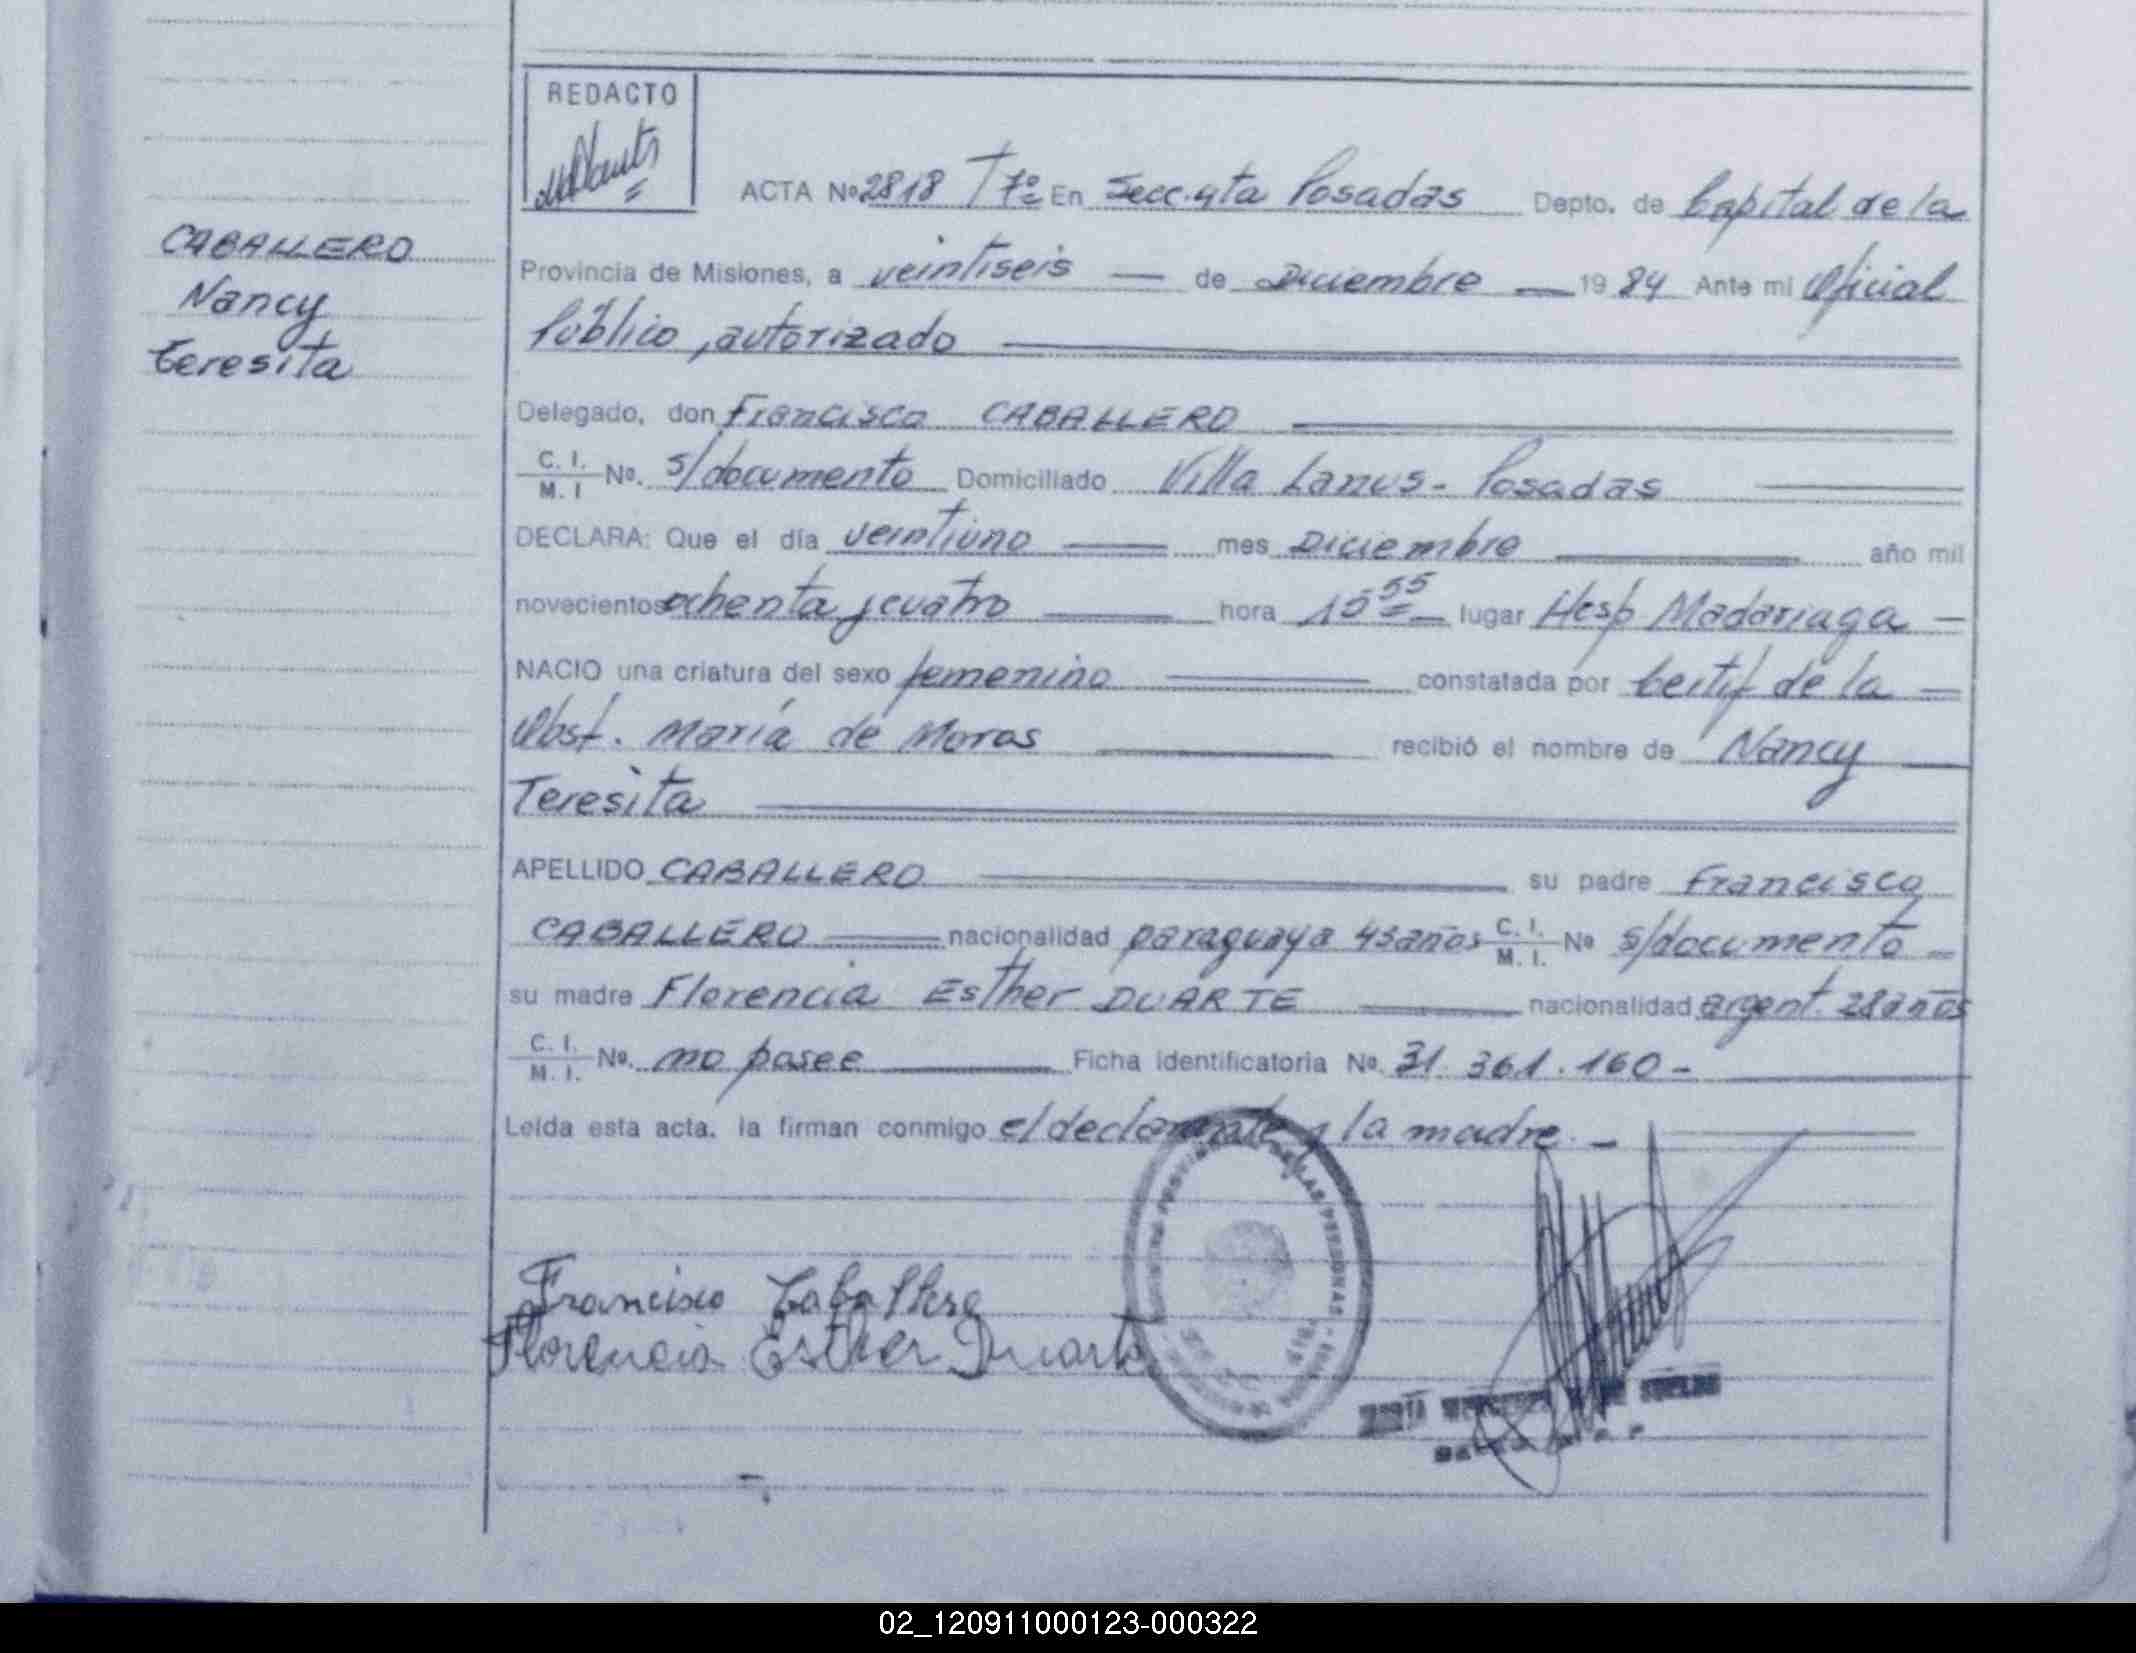 REDACTO
ACTA Nº 2818 Tº 7º En Secc. 4ta Posadas Depto. de Capital de la
CABALLERO
Nancy
Teresita
Provincia de Misiones, a veintiseis — de Diciembre — 1984 Ante mi Oficial
Público, autorizado
Delegado, don Francisco CABALLERO
C. I. / M. I Nº. s/documento Domiciliado Villa Lanus - Posadas
DECLARA: Que el día veintiuno — mes Diciembre — año mil
novecientos ochenta y cuatro — hora 15 55 lugar Hosp Madariaga —
NACIO una criatura del sexo femenino — constatada por Certif de la —
Obst. María de Moras — recibió el nombre de Nancy —
Teresita
APELLIDO CABALLERO — su padre Francisco
CABALLERO — nacionalidad paraguaya 45 años C. I. / M. I. Nº s/documento —
su madre Florencia Esther DUARTE — nacionalidad argent. 28 años
C. I. / M. I. Nº. no posee — Ficha identificatoria Nº. 31.361.160 -
Leída esta acta. la firman conmigo el declarante y la madre. —
Francisco Caballero
Florencia Esther Duarte
DE LAS PERSONAS
02_120911000123-000322